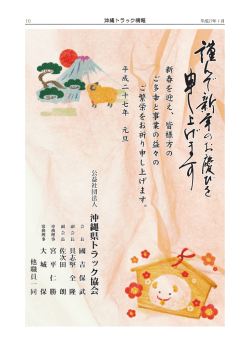 10
沖縄トラック情報
平成27年1月
謹んで新年のお慶びを
申し上げます
新春を迎え、皆様方の
ご多幸と事業の益々の
ご繁栄をお祈り申し上げます。
平成二十七年 元旦
公益社団法人
沖縄県トラック協会
会長 國吉保武
副会長 具志堅全隆
副会長 佐次田朗
専務理事 宮平仁勝
常務理事 大城保
他職員一同